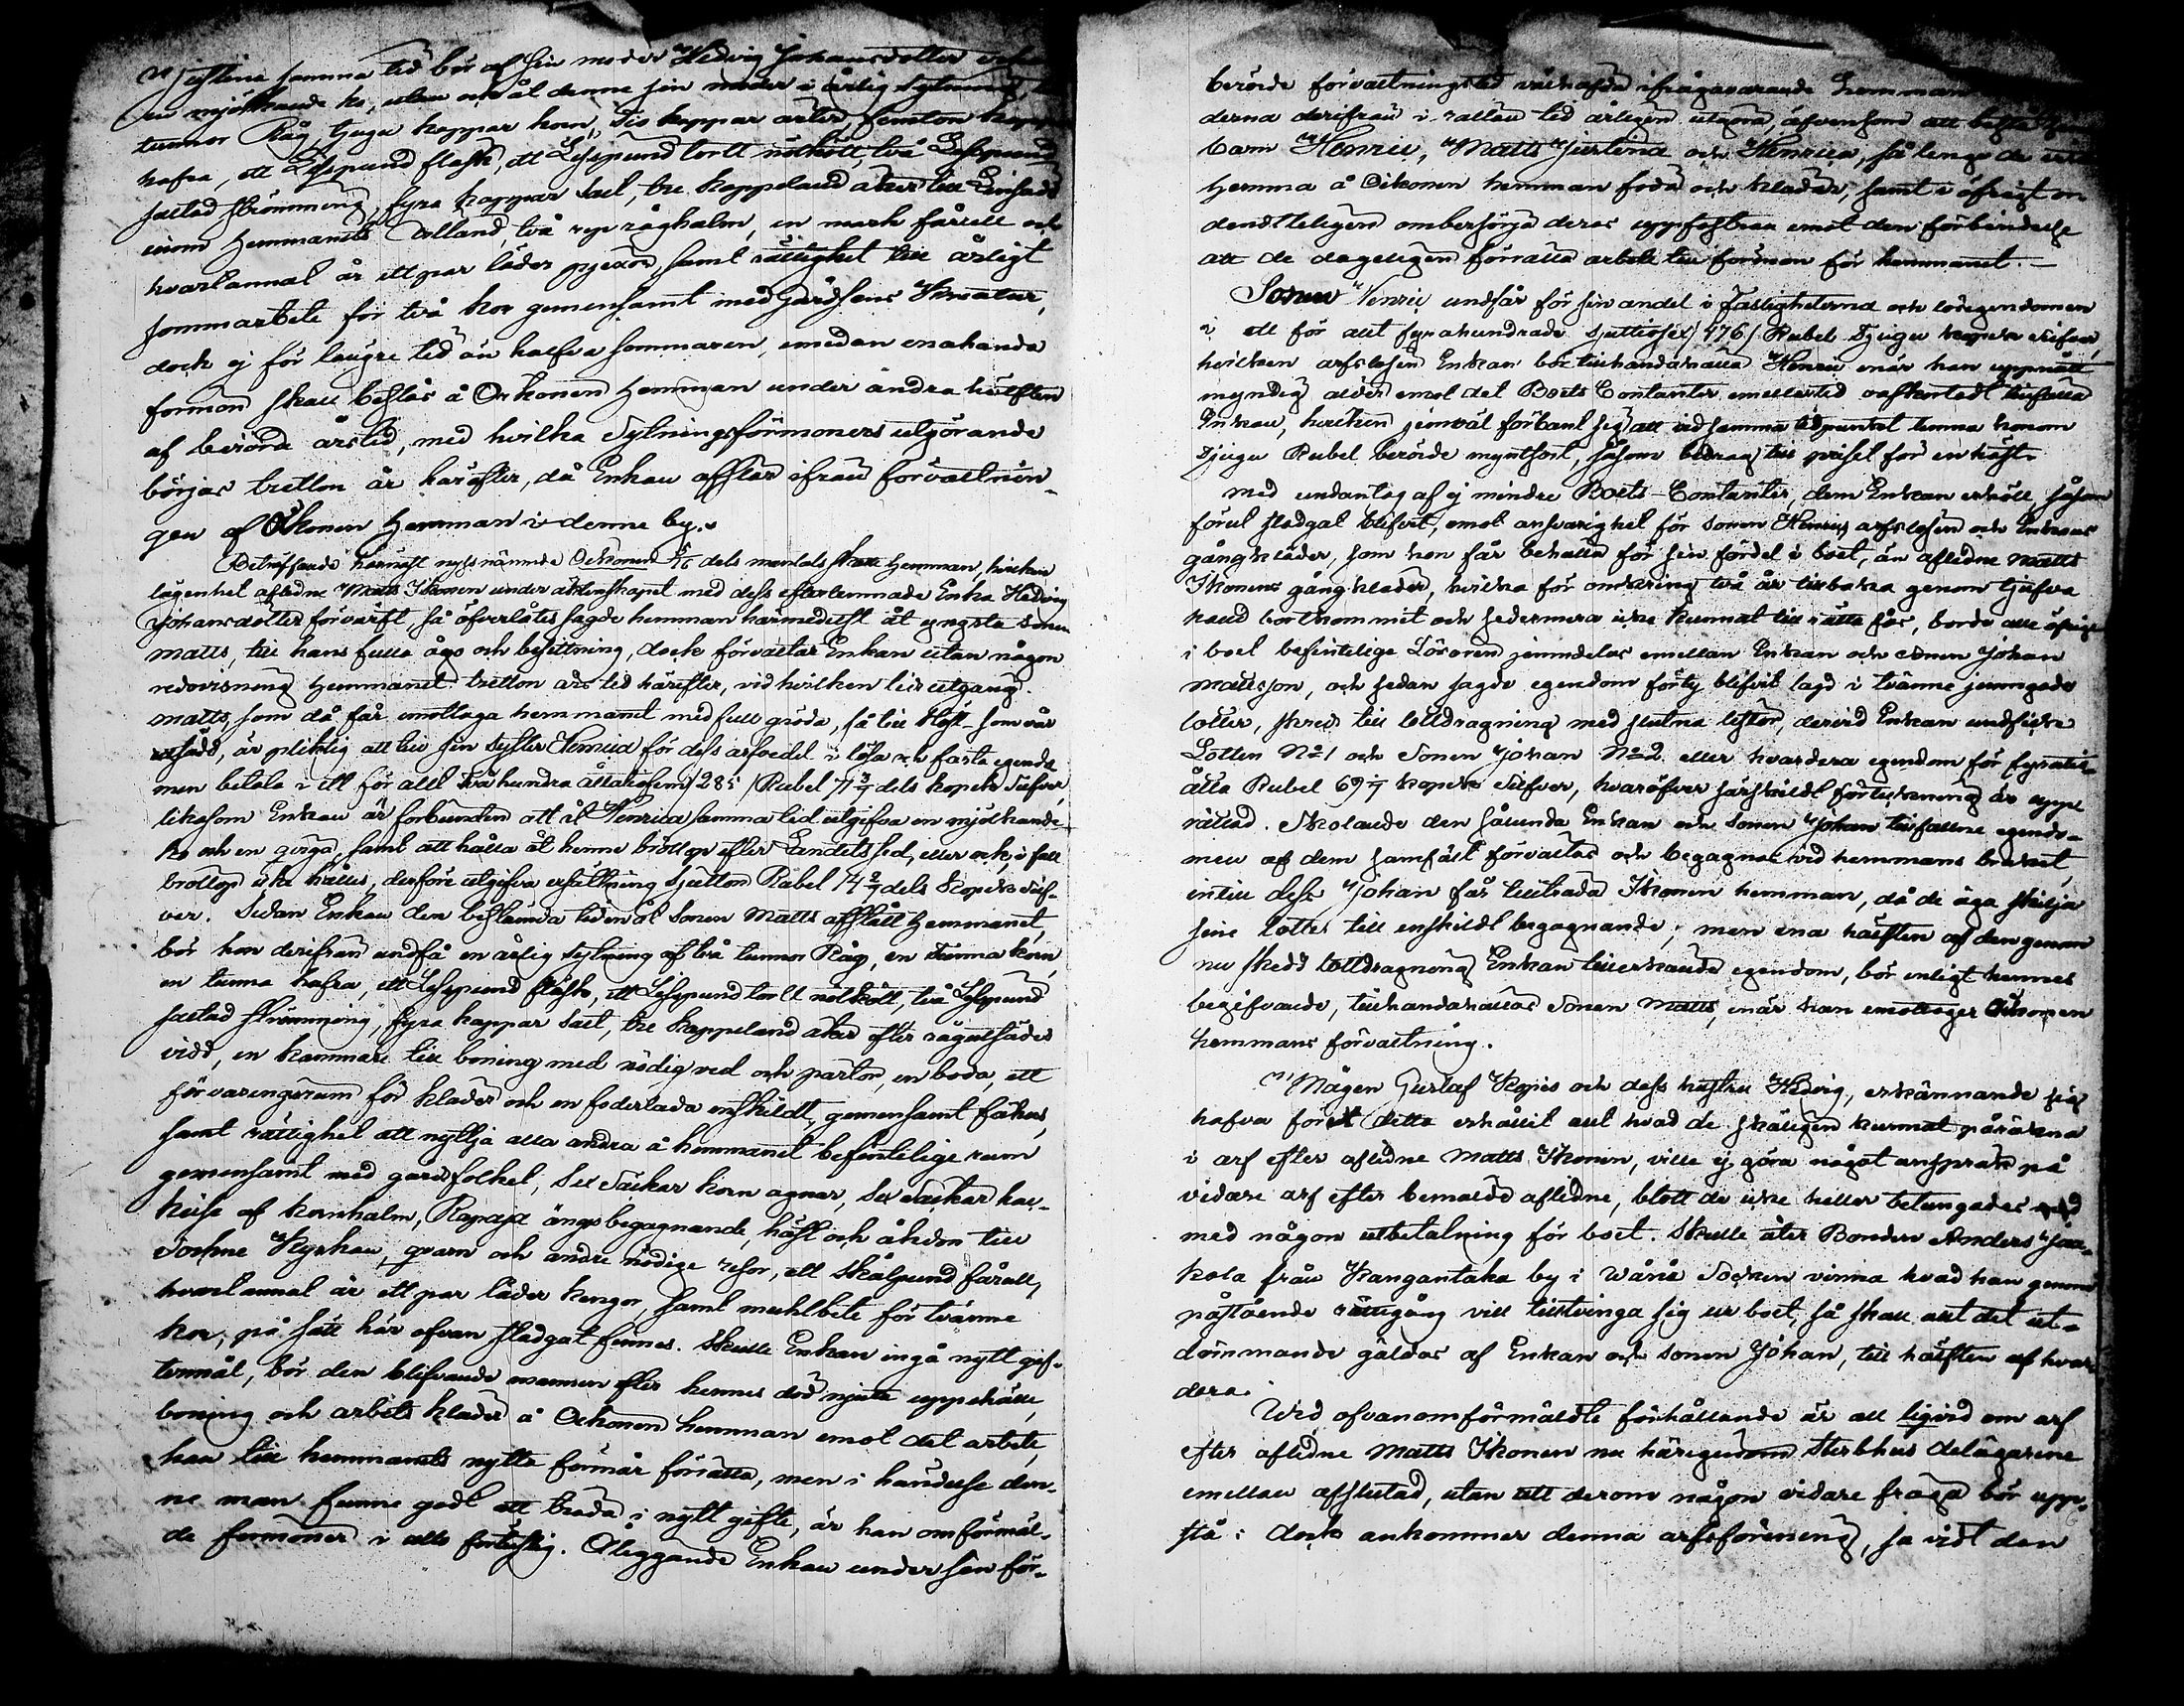 Justina samma tid bör af sin moder Hedvig Johansdotter
en mjölkande ko, utom om åt denne sin moder i årlig sytning,
tunnor Råg, tjugu kappar korn, Tio kappar ärter, femton kappar
hafra, ett Lisspund flask, ett Lisspund torrt nötkött, två Lisspund
saltad strömming, fyra kappar salt, tre kappeland åker till Linsådd
inom Hemmanets Tolland, två rep råghalm, en mark fårull och
hvartannat år ett par läder pjexor, samt rättighet till årligt
sommarbete för två kor gemensamt med gårdsens Kreatur,
dock ej för längre tid än halfva sommaren, emedan enahanda
formon skall bestås å Orkonen Hemman under andra hälften
af berörda årstid, med hvilka Sytningsförmoners utgörande
börjas tretton år härefter, då Enkan afstår ifrån förvaltnin-
gen af Oikonen Hemman i denne by.
Beträffande härnäst nyssnämnde Oikonen dels mantals skatte Hemman, hvilken
lägenhet aflidne Matts Ikonen under äktenskapet med dess efterlemnade Enka Hedvig
Johansdotter förvärft, så öfverlåtes sagde hemman härmedelst åt yngsta sonen
Matts, till hans fulla ägo och besittning, dock förvaltar Enkan utan någon
redovisning Hemmanet tretton års tid härefter, vid hvilken tids utgång
Matts, som då får emottaga hemmanet med full gröda, så till Höst- som vår
utsäd, är pliktig att till sin syster Henrica för dess arfsedel i lösa och fasta egendo-
men betala i ett för allt Två hundra åttatiofem /285/ Rubel 71 3/7 dels kopek Silfver,
likasom Enkan är förbunden att åt Henrica samma tid utgifva en mjölkande
ko och en qviga, samt att hålla åt henne bröllop efter Landets sed, eller och, i fall
bröllop icke hålles, derföre utgifva ersättning Sjutton Rubel 14 2/7 dels Kopek Silf-
ver. Sedan Enkan den bestämda tiden åt Sonen Matts afstått Hemmanet,
bör hon derifrån undfå en årlig sytning af två tunnor Råg, en tunna korn,
en tunna hafra, ett Lisspund fläsk, ett Lisspund torrt nötkött, två Lisspund
saltad strömming, fyra kappar salt, tre kappeland åker efter rågutsädes
vidd, en kammare till boning med nödig ved och pärtor, en boda, ett
förvaringsrum för kläder och en foderlada enskildt, gemensamt fähus,
samt rättighet att nyttja alla andra å hemmanet befintelige rum
gemensamt med gårdsfolket, Sex Säckar korn agnar, Sex Säckar hac-
kelse af kornhalm, Rapaja ängs begagnande, häst och åkdon till
Sockne Kyrkan, qvarn och andre nödige resor, ett skålpund fårull,
hvartannat år ett par läder kengor, samt muhlbete för tvänne
kor, på sätt här ofvan stadgat finnes. Skulle Enkan ingå nytt gif-
termål, bör den blifvande mannen efter hennes död njuta uppehälle,
boning och arbets kläder å Oikonen hemman emot det arbete,
han till hemmanets nytta förmår förrätta, men i händelse den-
ne man funne godt att träda i nytt gifte, är han omförmäl-
de formoner i allo förlustig. Åliggande Enkan under sin för-
berörde förvaltningstid vidhafda ifrågavarande Hemman
derna derifrån i rattan tid årligen utgöra, äfvensom att bestå
barn Henric, Matts Justina och Henrica, så länge de
Hemma å Oikonen hemman föda och kläder, samt i öfrigt
dendtteligen ombersörja deras uppfostran emot den förbindelse
att de dageligen förrätta arbete till förmon för hemmanet.—
Sonen Henric undfår för sin andel i fastigheterna och lösegendomen
i ett för allt fyrahundrade sjuttiosex /476/ Rubel Tjugu kopek silfver,
hvilken arfslosen Enkan bör tillhandahålla Henric enär han uppnått
myndig ålder emot det Boets Contanter emellertid oafkortadt tillfalla
Enkan, hvilken jemväl förband sig att vid samma tidpunkt lemna honom
Tjugu Rubel berörde myntsort, såsom bidrag till priset för en häst.
Med undantag af ej mindre Boets-Contanter, dem Enkan erhöll såsom
förut stadgat blifvit, emot ansvarighet för sonen Henrics arfslosen och Enkans
gångkläder, som hon får behålla för sin fördel i boet, än aflidne Matts
Ikonens gångkläder, hvilka för omkring två år tillbaka genom tjufva
hand bortkommit och sedermera icke kunnat till rätta fås, borde alle öfrige
i boet befintelige Lösören jemndelas emellan Enkan och Sonen Johan
Mattsson, och sedan sagde egendom förty blifvit lagd i tvänne jemngoda
lotter, skreds till lottdragning med slutna lister, dervid Enkan undfick
Lotten No 1 och Sonen Johan No 2 eller hvardera egendom för fyratio-
åtta Rubel 69 1/7 kopek Silfver, hvaröfver särskildt förteckning är upp-
rättad. Skolande den sålunda Enkan och Sonen Johan tillfallne egendo-
men af dem samfäldt förvaltas och begagnas vid hemmans bruket
intill dess Johan får tillträda Ikonen hemman, då de äga skilja
sine lotter till enskildt begagnande; men ena hälften af den genom
nu skedd lottdragning Enkan tillerkände egendom, bör enligt hennes
begifvande, tillhandahållas Sonen Matts, enär han emottager Oikonen
hemmans förvaltning.
Mågen Gustaf Kopis och dess hustru Hedvig, erkännande sig
hafva förut detta erhållit allt hvad de skäligen kunnat påräkna
i arf efter aflidne Matts Ikonen, ville ej göra något anspråk på
vidare arf efter bemälde aflidne, blott de icke heller betungades
med någon utbetalning för boet. Skulle åter Bonden Anders Jaa-
kola från Kangantaka by i Wånå Socken vinna hvad han genom
påstående rättegång vill tilltvinga sig ur boet, så skall allt det ut-
dömmande gäldas af Enkan och sonen Johan, till hälften af hvar-
dera.
Wid ofvanomförmäldte förhållande är all liqvid om arf
efter aflidne Matts Ikonen nu härigenom sterbhus delägarene
emellan afslutad, utan att derom någon vidare fråga bör upp-
stå: dock ankommer denna arfsförening, så vidt den